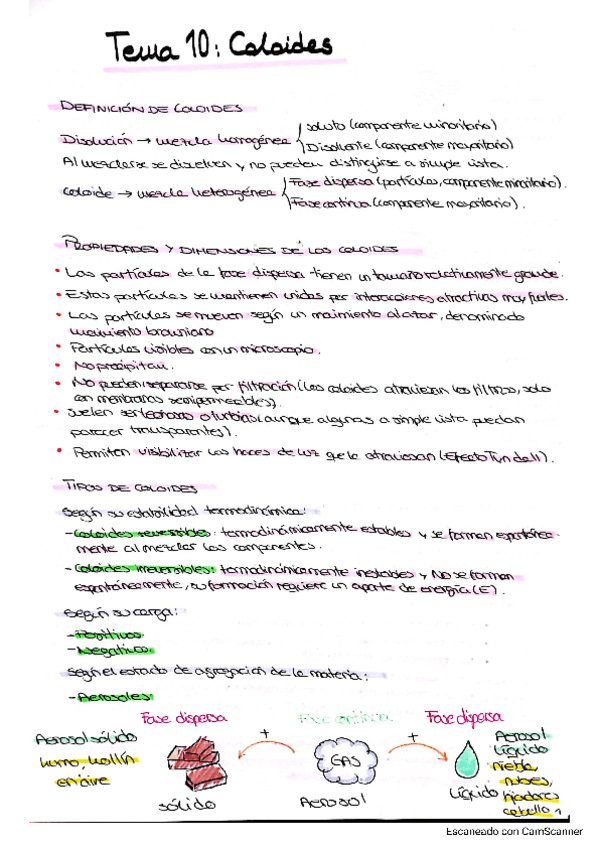 Tema 10: Coloides
DEFINICIÓN DE COLOIDES
Disolución → mezcla homogénea soluto (componente minoritario)
Disolvente (componente mayoritario)
Al mezclarse se disuelven y no pueden distinguirse a simple vista.
Coloide → mezcla heterogénea Fase dispersa (partículas, componente minoritario).
Fase continua (componente mayoritario).
PROPIEDADES Y DIMENSIONES DE LOS COLOIDES
• Las partículas de la fase dispersa tienen un tamaño relativamente grande.
• Estas partículas se mantienen unidas por interacciones atractivas muy fuertes.
• Las partículas se mueven según un movimiento al azar, denominado
movimiento browniano
• Partículas visibles con un microscopio.
• No precipitan.
• No pueden separarse por filtración (los coloides atraviesan los filtros, solo
con membranas semipermeables).
• Suelen ser lechosos o turbios (aunque algunas a simple vista puedan
parecer transparentes).
• Permiten visibilizar los haces de luz que le atraviesan (efecto Tyndall).
TIPOS DE COLOIDES
Según su estabilidad termodinámica:
- Coloides reversibles: termodinámicamente estables y se forman espontánea-
mente al mezclar los componentes.
- Coloides irreversibles: termodinámicamente inestables y NO se forman
espontáneamente, su formación requiere un aporte de energía (E).
Según su carga:
- Positivos.
- Negativos.
Según el estado de agregación de la materia:
- Aerosoles:
Fase dispersa Fase continua Fase dispersa
Aerosol sólido
humo, hollín
en aire
+
GAS
+
Aerosol
líquido
niebla,
nubes,
fijadores
cabello,
sólido Aerosol Líquido
Escaneado con CamScanner